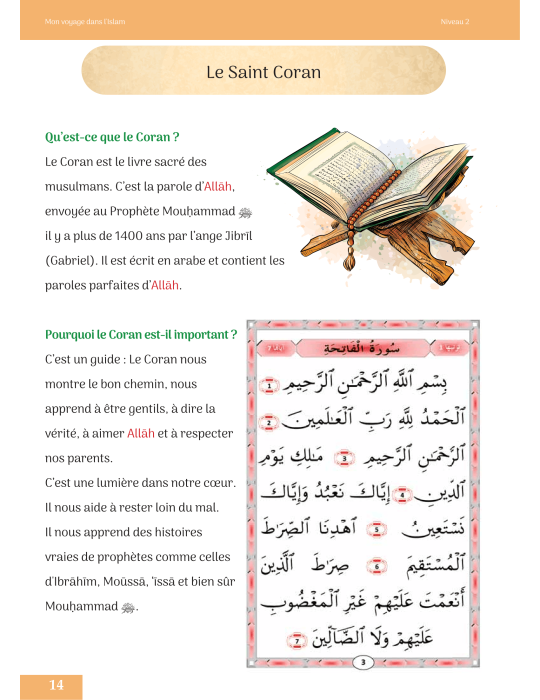 Mon voyage dans l'Islam
Niveau 2
Le Saint Coran
Qu'est-ce que le Coran ?
Le Coran est le livre sacré des
musulmans. C'est la parole d'Allāh,
envoyée au Prophète Mouḥammad ﷺ
il y a plus de 1400 ans par l'ange Jibrīl
(Gabriel). Il est écrit en arabe et contient les
paroles parfaites d'Allāh.
Pourquoi le Coran est-il important ?
C'est un guide : Le Coran nous
montre le bon chemin, nous
apprend à être gentils, à dire la
vérité, à aimer Allāh et à respecter
nos parents.
C'est une lumière dans notre cœur.
Il nous aide à rester loin du mal.
Il nous apprend des histoires
vraies de prophètes comme celles
d'Ibrāhīm, Moūssā, 'īssā et bien sûr
Mouḥammad ﷺ.
سُورَةُ الْفَاتِحَةِ
بِسْمِ ٱللَّهِ ٱلرَّحْمَـٰنِ ٱلرَّحِيمِ 1
ٱلْحَمْدُ لِلَّهِ رَبِّ ٱلْعَـٰلَمِينَ 2
ٱلرَّحْمَـٰنِ ٱلرَّحِيمِ 3 مَـٰلِكِ يَوْمِ
ٱلدِّينِ 4 إِيَّاكَ نَعْبُدُ وَإِيَّاكَ
نَسْتَعِينُ 5 ٱهْدِنَا ٱلصِّرَٰطَ
ٱلْمُسْتَقِيمَ 6 صِرَٰطَ ٱلَّذِينَ
أَنْعَمْتَ عَلَيْهِمْ غَيْرِ ٱلْمَغْضُوبِ
عَلَيْهِمْ وَلَا ٱلضَّآلِّينَ 7
3
14